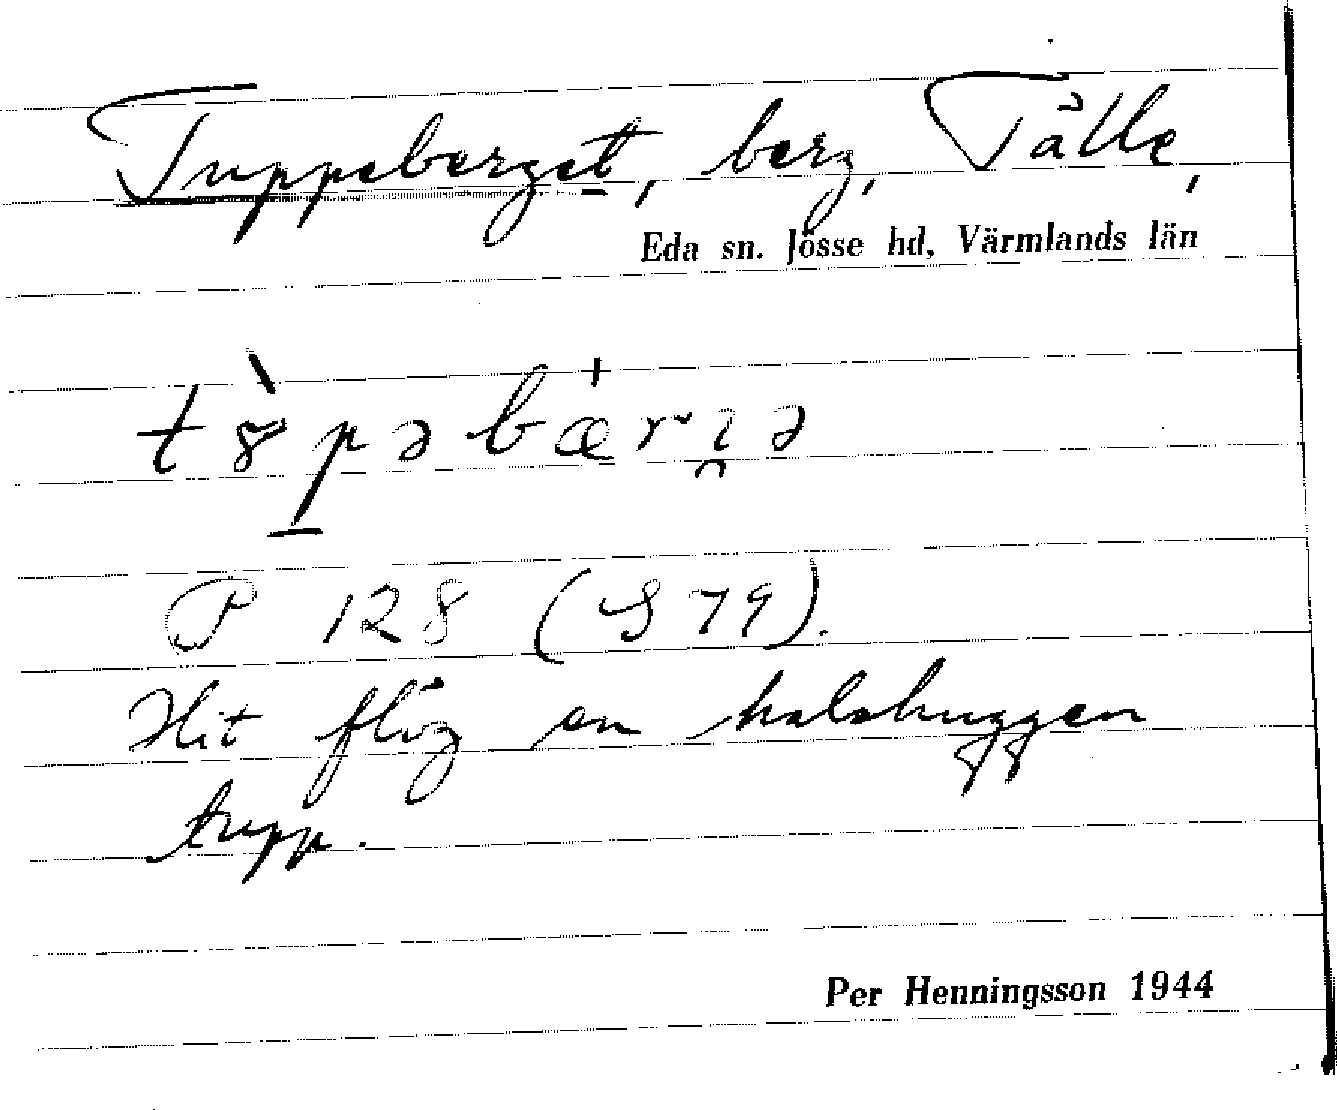 Tuppeberget, berg, Tålle,
Eda sn. Jösse hd, Värmlands län
P 128 (S 79).
Hit flög en halshuggen
tupp.
Per Henningsson 1944